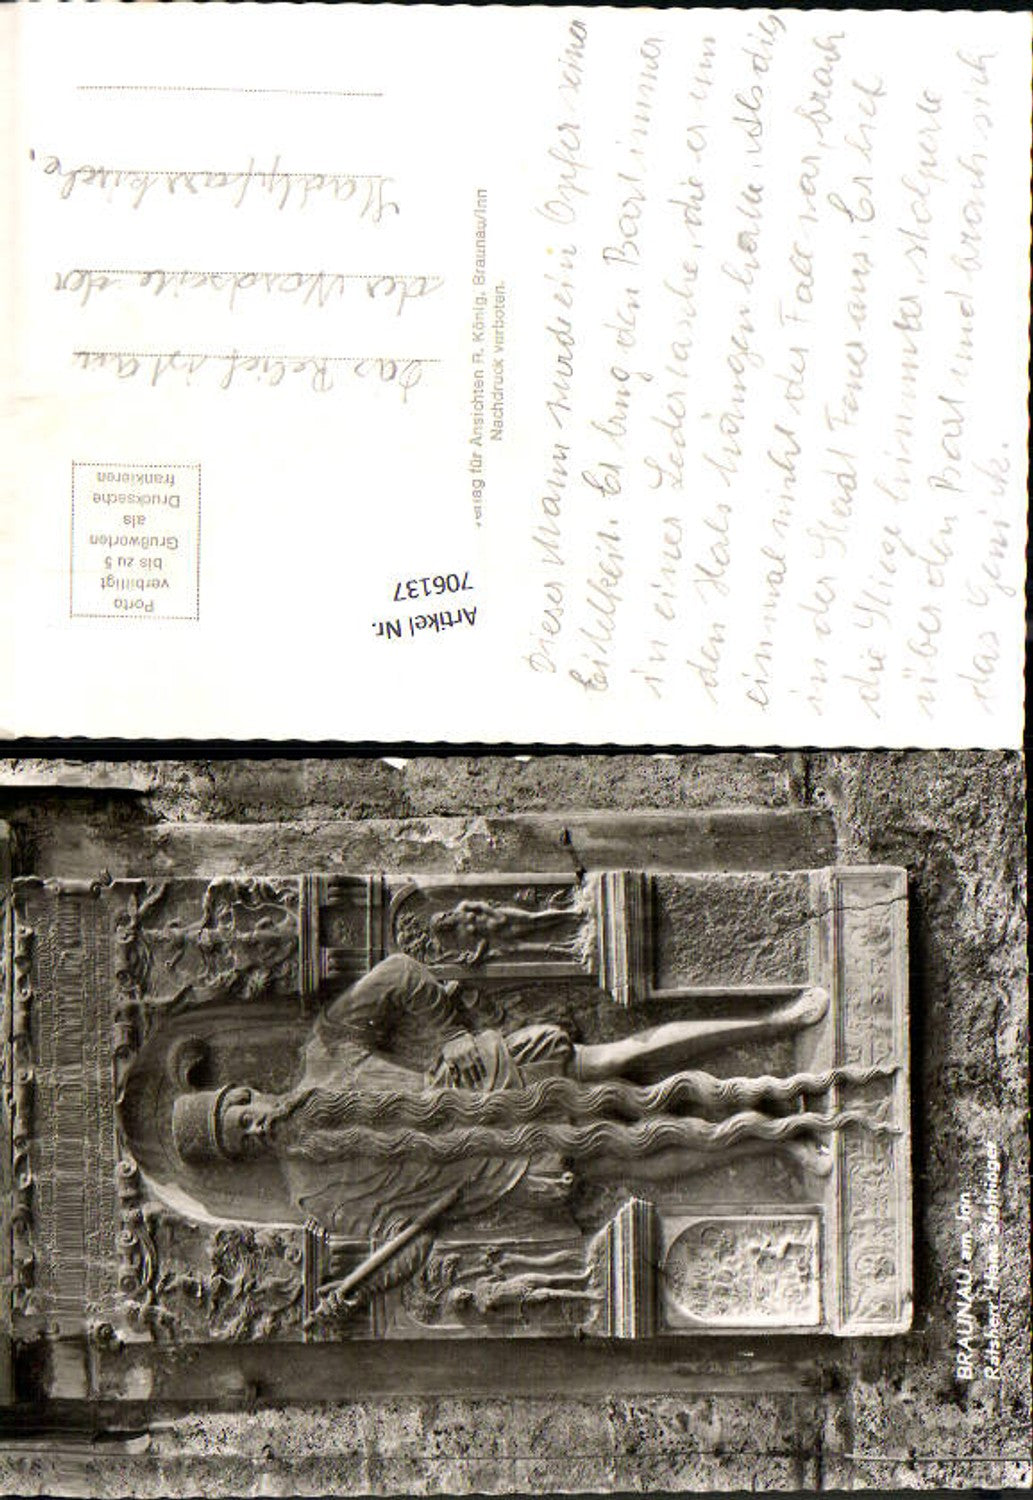 Dieser Mann wurde ein Opfer seiner
Eitelkeit. Er trug den Bart immer
in einer Ledertasche, die er um
den Hals hängen hatte. Als dies
einmal nicht der Fall war, brach
in der Stadt Feuer aus. Er lief
die Stiege hinunter, stolperte
über den Bart und brach sich
das Genick.
Verlag für Ansichten R. König, Braunau/Inn
Nachdruck verboten.
Artikel Nr.
706137
Porto
verbilligt
bis zu 5
Grußworten
als
Drucksache
frankieren
Das Relief ist an
der Nordseite der
Stadtpfarrkirche.
BRAUNAU am Inn
Ratsherr Hans Steininger